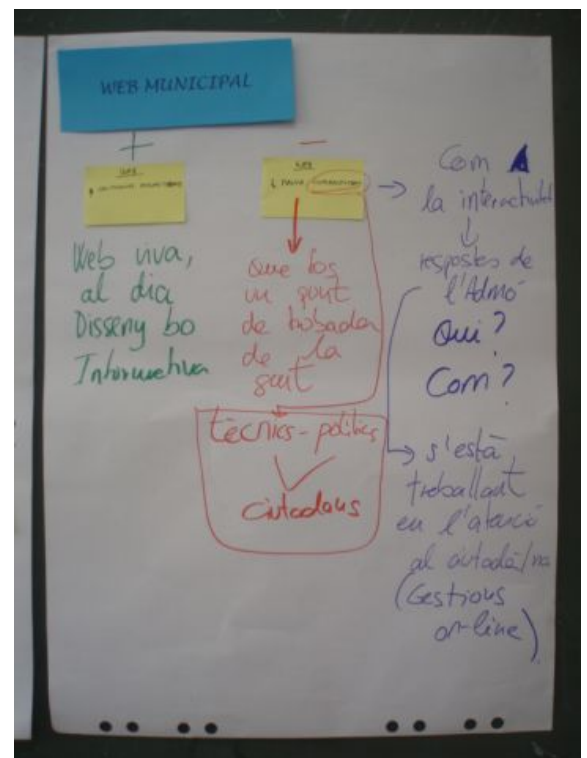 WEB MUNICIPAL
+
-
WEB
WEB
Web viva,
al dia
Disseny bo
Informativa
Que fos
un punt
de trobada
de la
gent
tècnics-polítics
ciutadans
Com
la interactivitat
respostes de
l'Admó
Qui?
Com?
s'està
treballant
en l'atenció
al ciutadà/na
(Gestions
on-line)